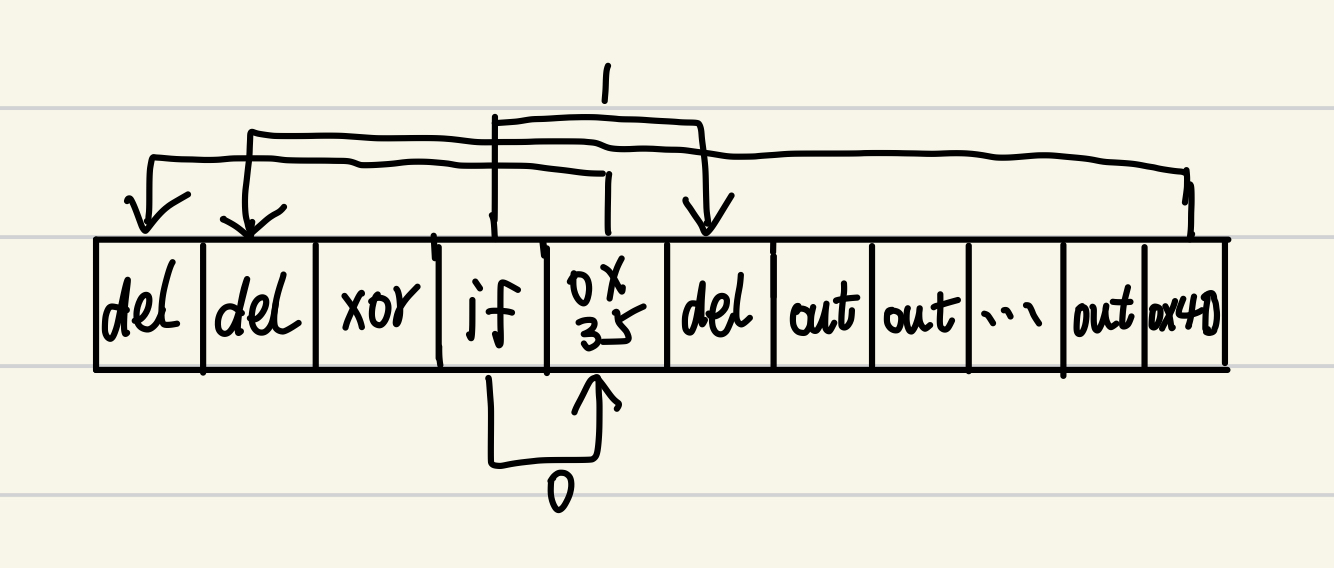 1
del del xor if 0x
35 del out out ... out 0x40
0